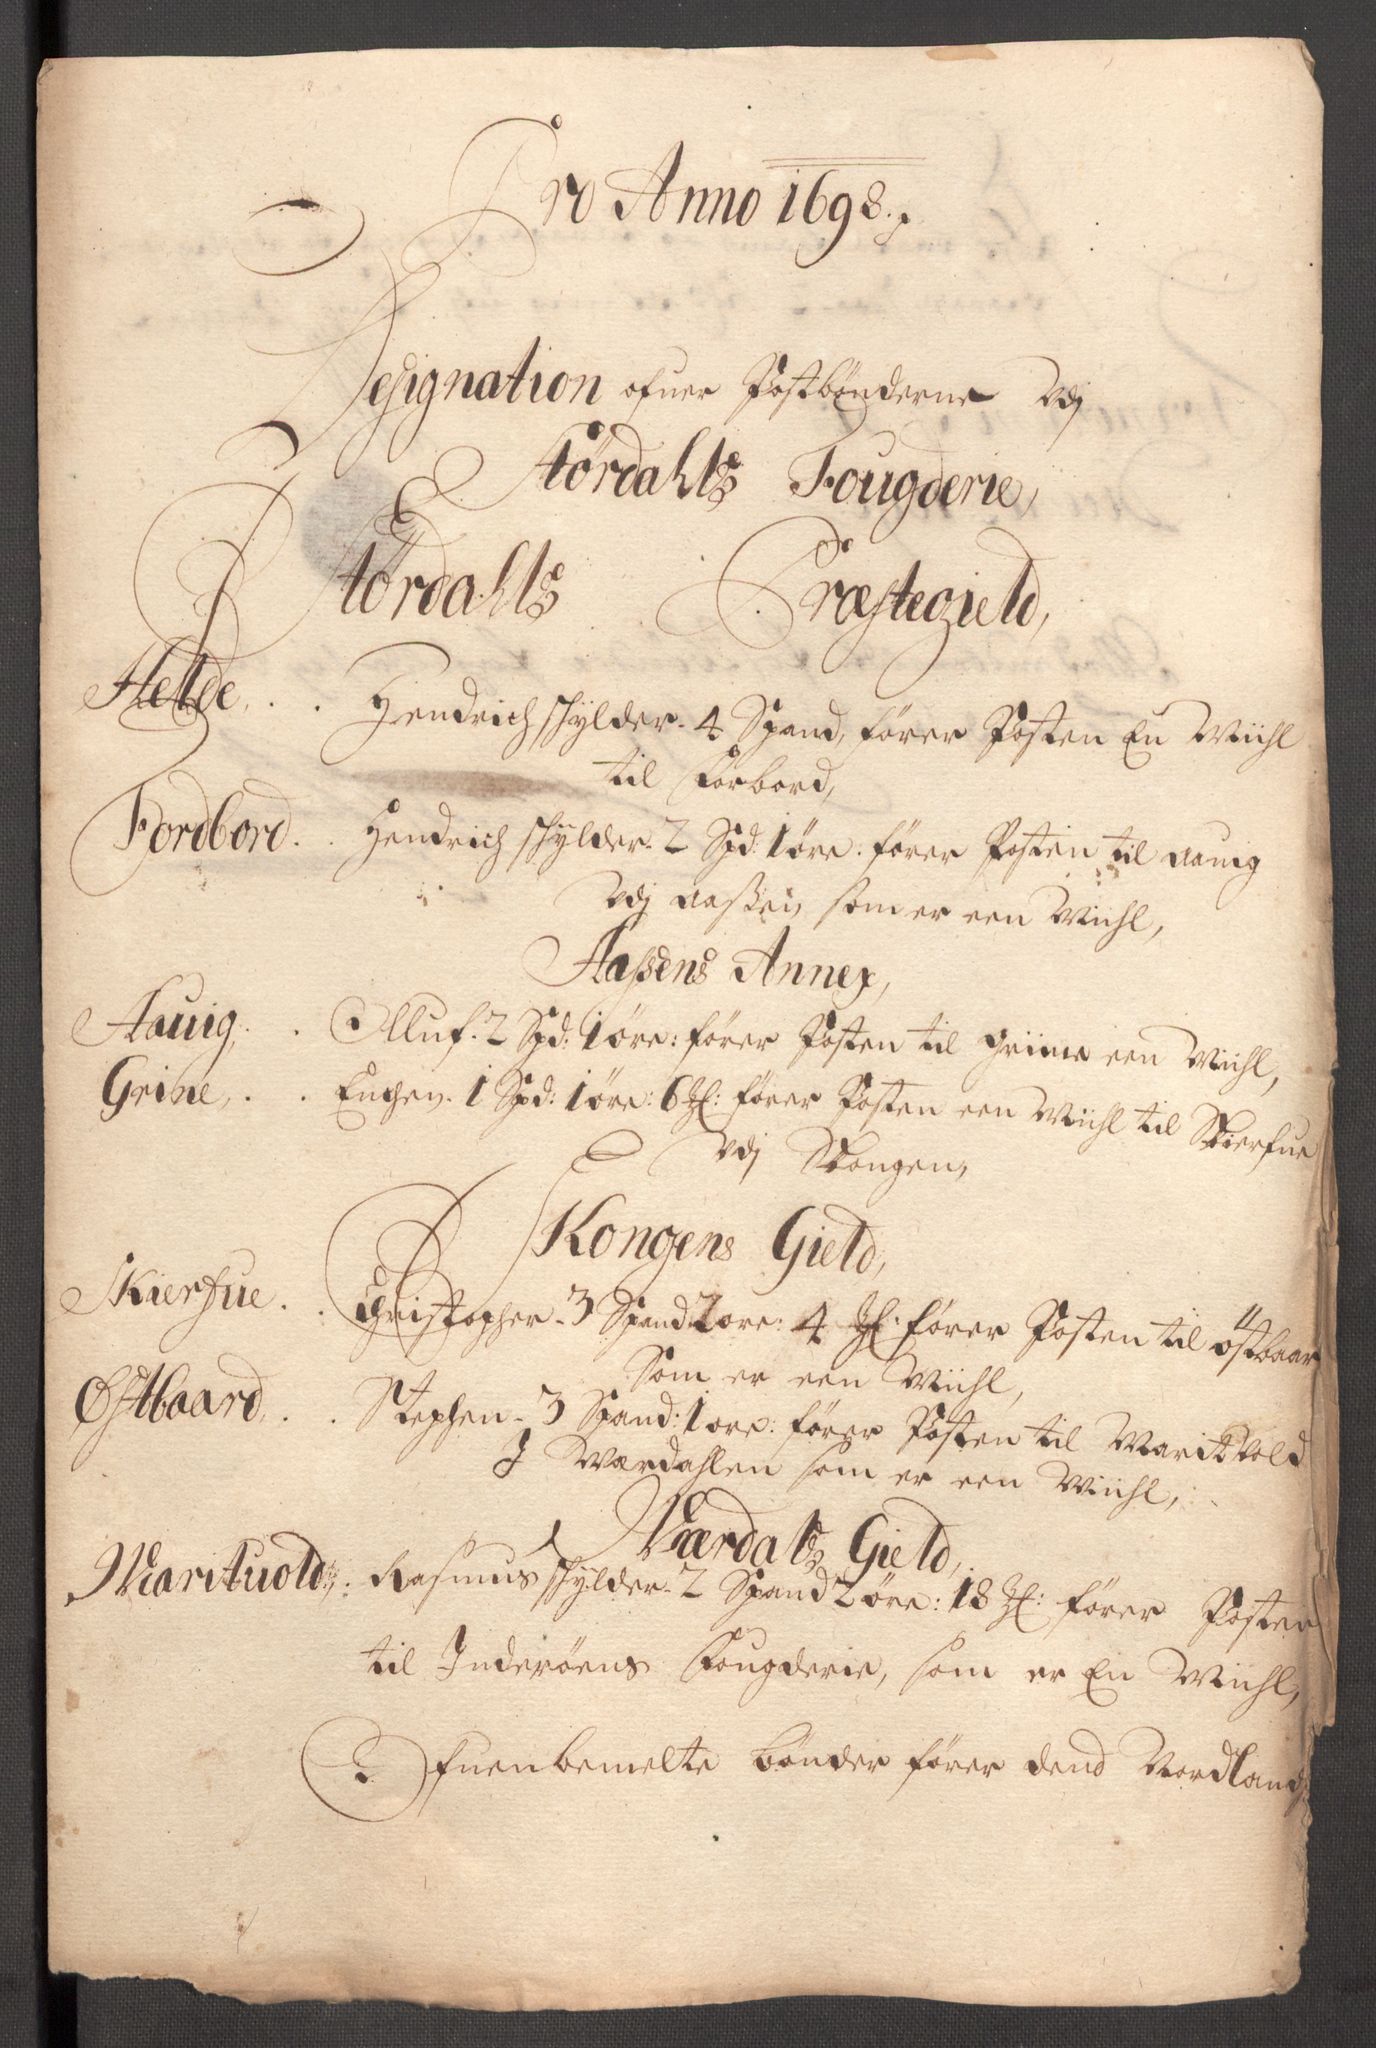 Pro Anno 1698.
Designation ofuer Postbønderne Vdj
Størdahls Fougderie,
Størdahls Præstegield,
Helde, . . Hendrich schylder - 4 Spand, fører Posten En Miihl
til Forbord,
Fordbord. . Hendrich schylder - 2 Spd: 1 øre. fører Posten til Aauig
Vdj Aaßen, som er een Miihl,
Aaßens Annex,
Aauig, . . Olluf - 2 Spd: 1 øre: fører Posten til Griine een Miihl,
Grine, . . Enchen - 1 Spd: 1 øre: 6 Ʒl: fører Posten een Miihl til Skierfue
Vdj Skongen,
Skongens Gield,
Skierfue . . Christopher - 3 Spand 2 øre: 4 Ʒl: fører Posten til østbaar
Som er een Miihl,
Østbaard, . . Stephen - 3 Spand: 1 øre: fører Posten til Maritvold
J Værdahlen som er een Miihl,
Værdals Gield,
Marituold, . Rasmus schylder - 2 Spand 2 øre: 18 Ʒl: fører Posten
til Inderøens Fougderie, som er En Miihl,
Ofuenbemelte bønder fører dend Nordland